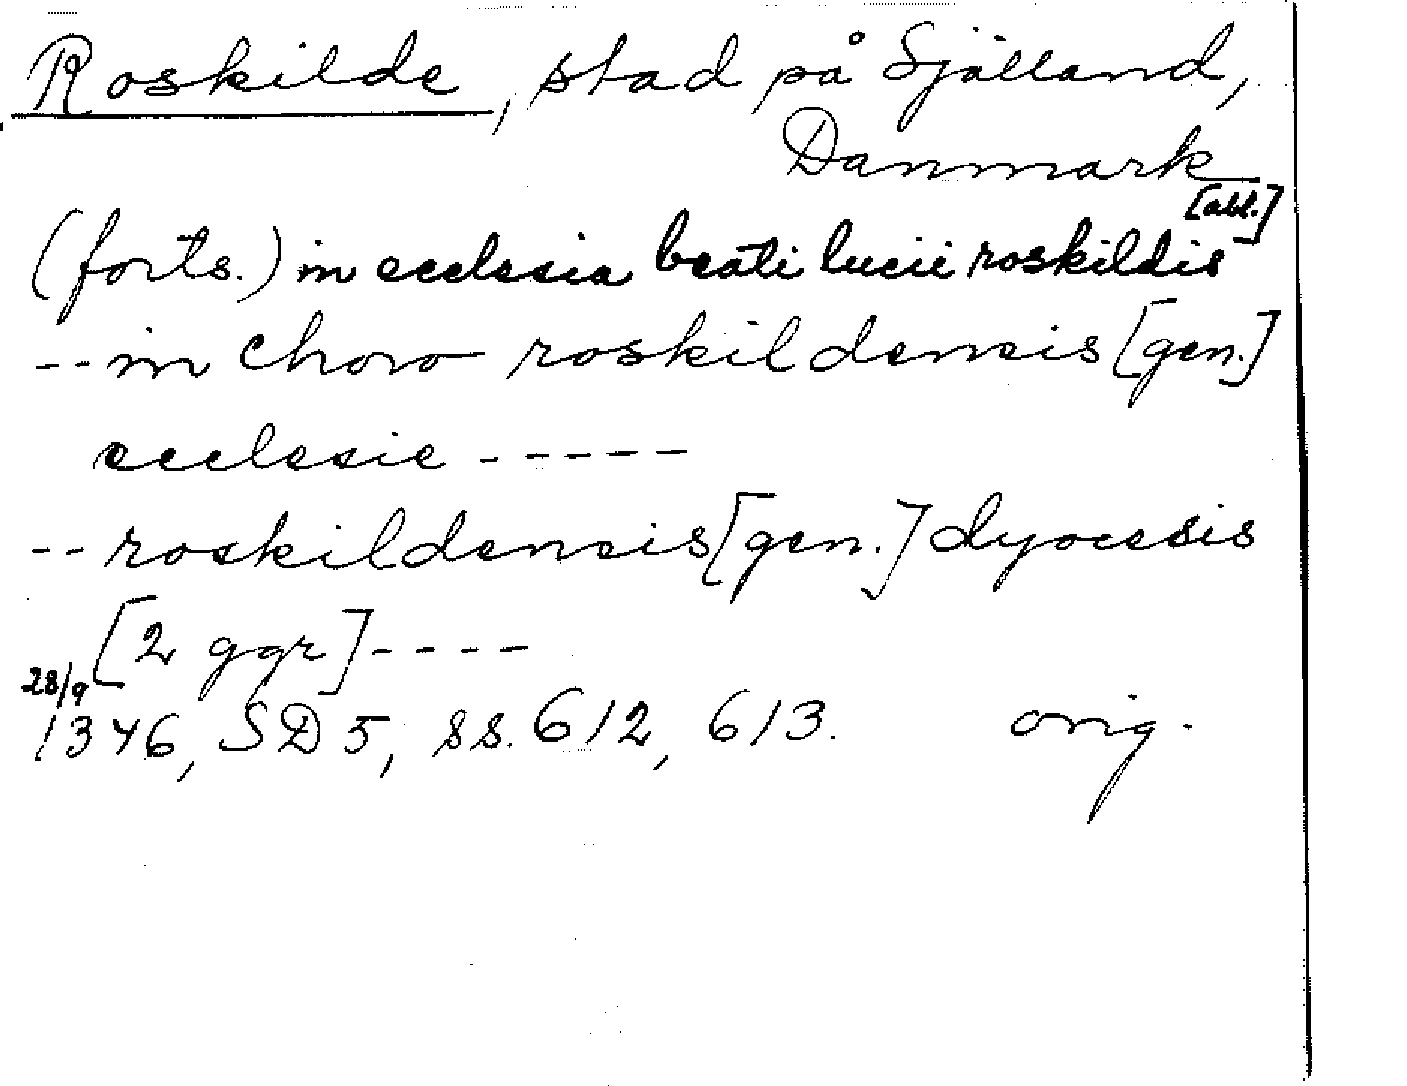 Roskilde, stad på Själland,
Danmark
(forts.) in ecclesia beati lucii roskildis [abl.]
-- in choro roskildensis [gen.]
ecclesie -----
-- roskildensis [gen.] dyocesis
[2 ggr] ----
28/9
1346, SD 5, ss. 612, 613. orig.